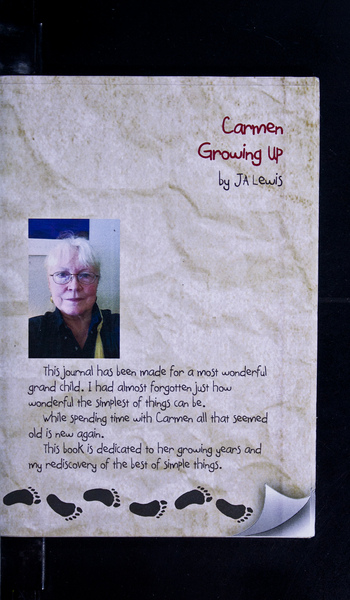 Carmen
Growing UP
by JA Lewis
This journal has been made for a most wonderful
grand child. I had almost forgotten just how
wonderful the simplest of things can be.
While spending time with Carmen all that seemed
old is new again.
This book is dedicated to her growing years and
my rediscovery of the best of simple things.